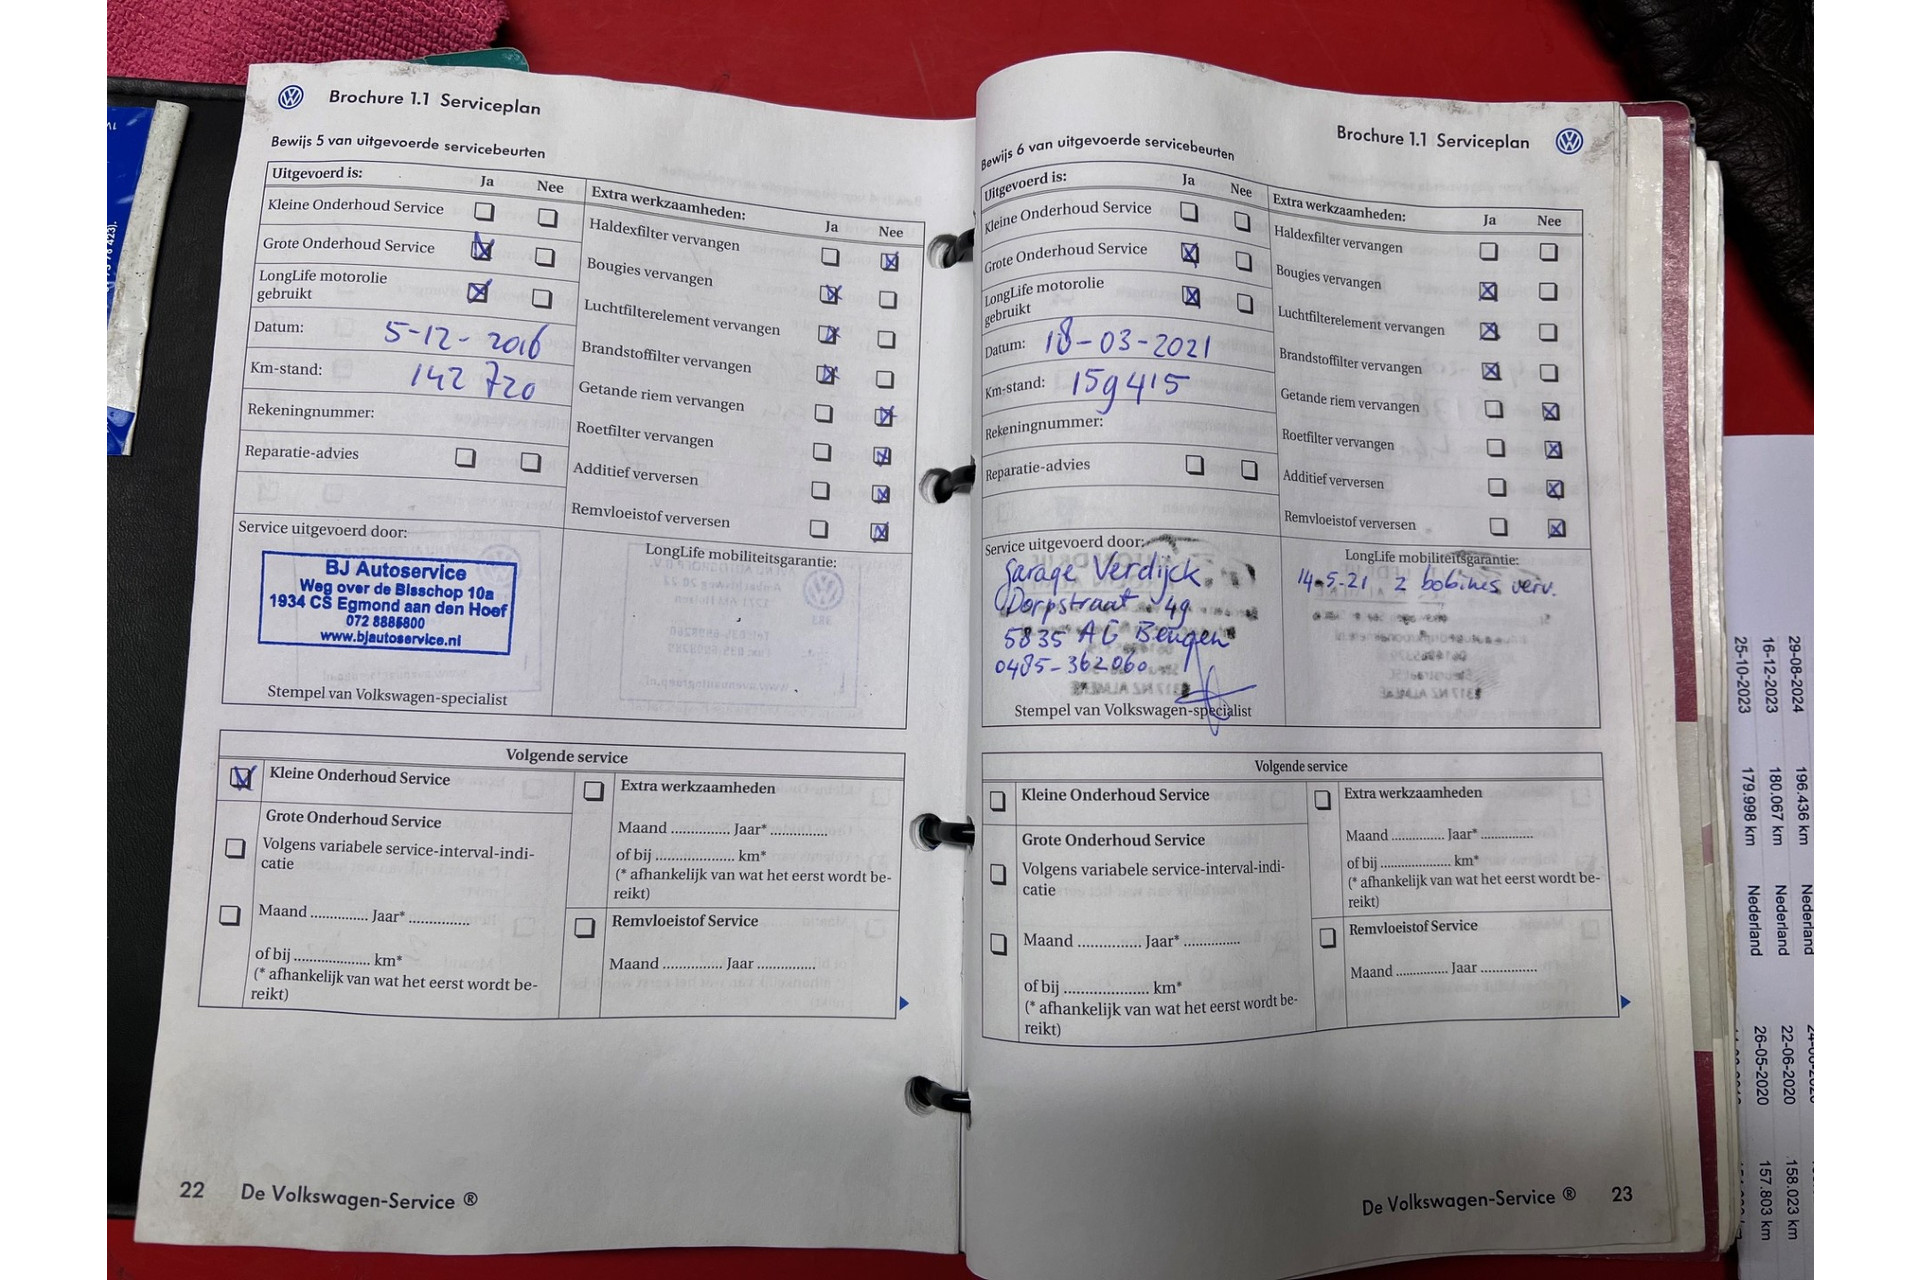 Brochure 1.1 Serviceplan
Bewijs 5 van uitgevoerde servicebeurten
Uitgevoerd is:
Ja Nee
Kleine Onderhoud Service
Grote Onderhoud Service
LongLife motorolie
gebruikt
Datum: 5-12-2016
Km-stand: 142 720
Rekeningnummer:
Reparatie-advies
Extra werkzaamheden:
Ja Nee
Haldexfilter vervangen
Bougies vervangen
Luchtfilterelement vervangen
Brandstoffilter vervangen
Getande riem vervangen
Roetfilter vervangen
Additief verversen
Remvloeistof verversen
Service uitgevoerd door:
BJ Autoservice
Weg over de Bisschop 10a
1934 CS Egmond aan den Hoef
072 8885800
www.bjautoservice.nl
Stempel van Volkswagen-specialist
LongLife mobiliteitsgarantie:
Volgende service
Kleine Onderhoud Service
Grote Onderhoud Service
Volgens variabele service-interval-indi-
catie
Maand .............. Jaar* ..............
of bij ................... km*
(* afhankelijk van wat het eerst wordt be-
reikt)
Extra werkzaamheden
Maand .............. Jaar* ..............
of bij .................... km*
(* afhankelijk van wat het eerst wordt be-
reikt)
Remvloeistof Service
Maand .............. Jaar ..............
22 De Volkswagen-Service ®
Brochure 1.1 Serviceplan
Bewijs 6 van uitgevoerde servicebeurten
Uitgevoerd is:
Ja Nee
Kleine Onderhoud Service
Grote Onderhoud Service
LongLife motorolie
gebruikt
Datum: 18-03-2021
Km-stand: 159415
Rekeningnummer:
Reparatie-advies
Extra werkzaamheden:
Ja Nee
Haldexfilter vervangen
Bougies vervangen
Luchtfilterelement vervangen
Brandstoffilter vervangen
Getande riem vervangen
Roetfilter vervangen
Additief verversen
Remvloeistof verversen
Service uitgevoerd door:
Garage Verdijck
Dorpstraat 49
5835 AG Beugen
0485-362060
Stempel van Volkswagen-specialist
LongLife mobiliteitsgarantie:
14-5-21 2 bobines verv.
Volgende service
Kleine Onderhoud Service
Grote Onderhoud Service
Volgens variabele service-interval-indi-
catie
Maand .............. Jaar* ..............
of bij ..................... km*
(* afhankelijk van wat het eerst wordt be-
reikt)
Extra werkzaamheden
Maand .............. Jaar* ..............
of bij .................. km*
(* afhankelijk van wat het eerst wordt be-
reikt)
Remvloeistof Service
Maand .............. Jaar ..............
De Volkswagen-Service ® 23
29-08-2024 196.436 km Nederland
16-12-2023 180.067 km Nederland 22-06-2020 158.023 km
25-10-2023 179.998 km Nederland 26-05-2020 157.803 km